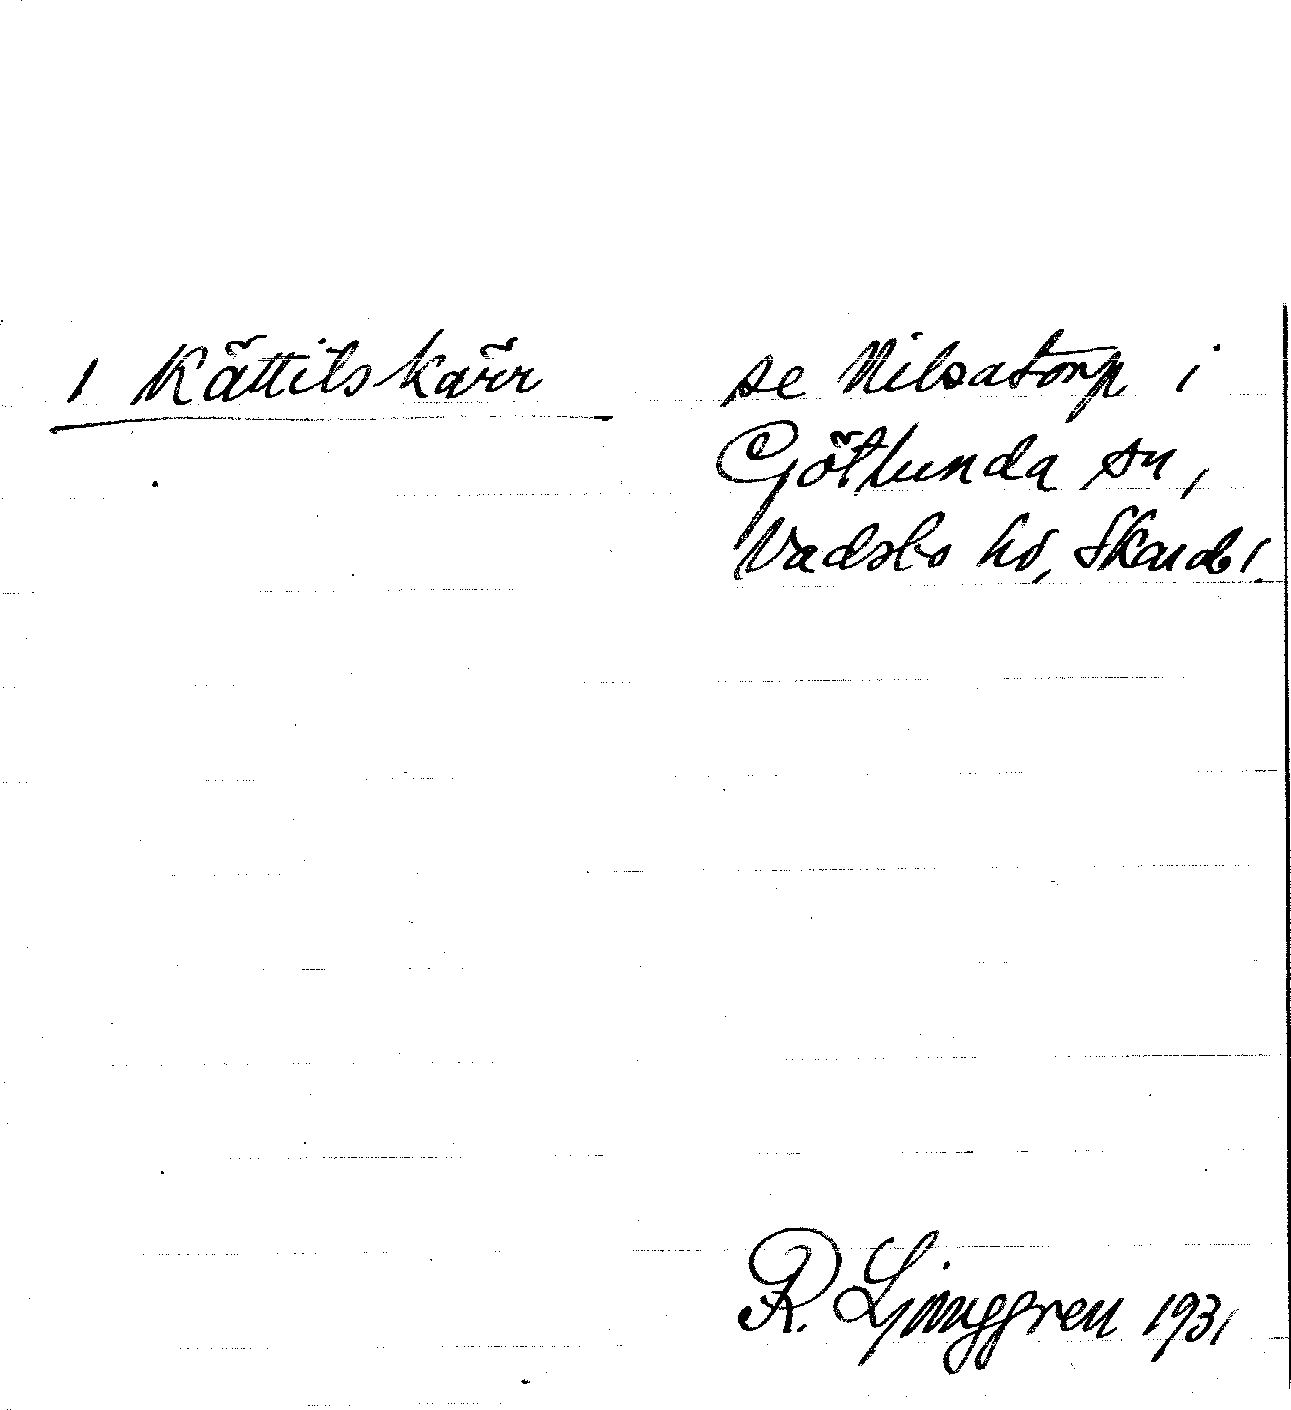 1 Kättilskärr
se Nilsatorp i
Götlunda sn,
Vadsbo hd, Skarab. l.
R. Ljunggren 1931